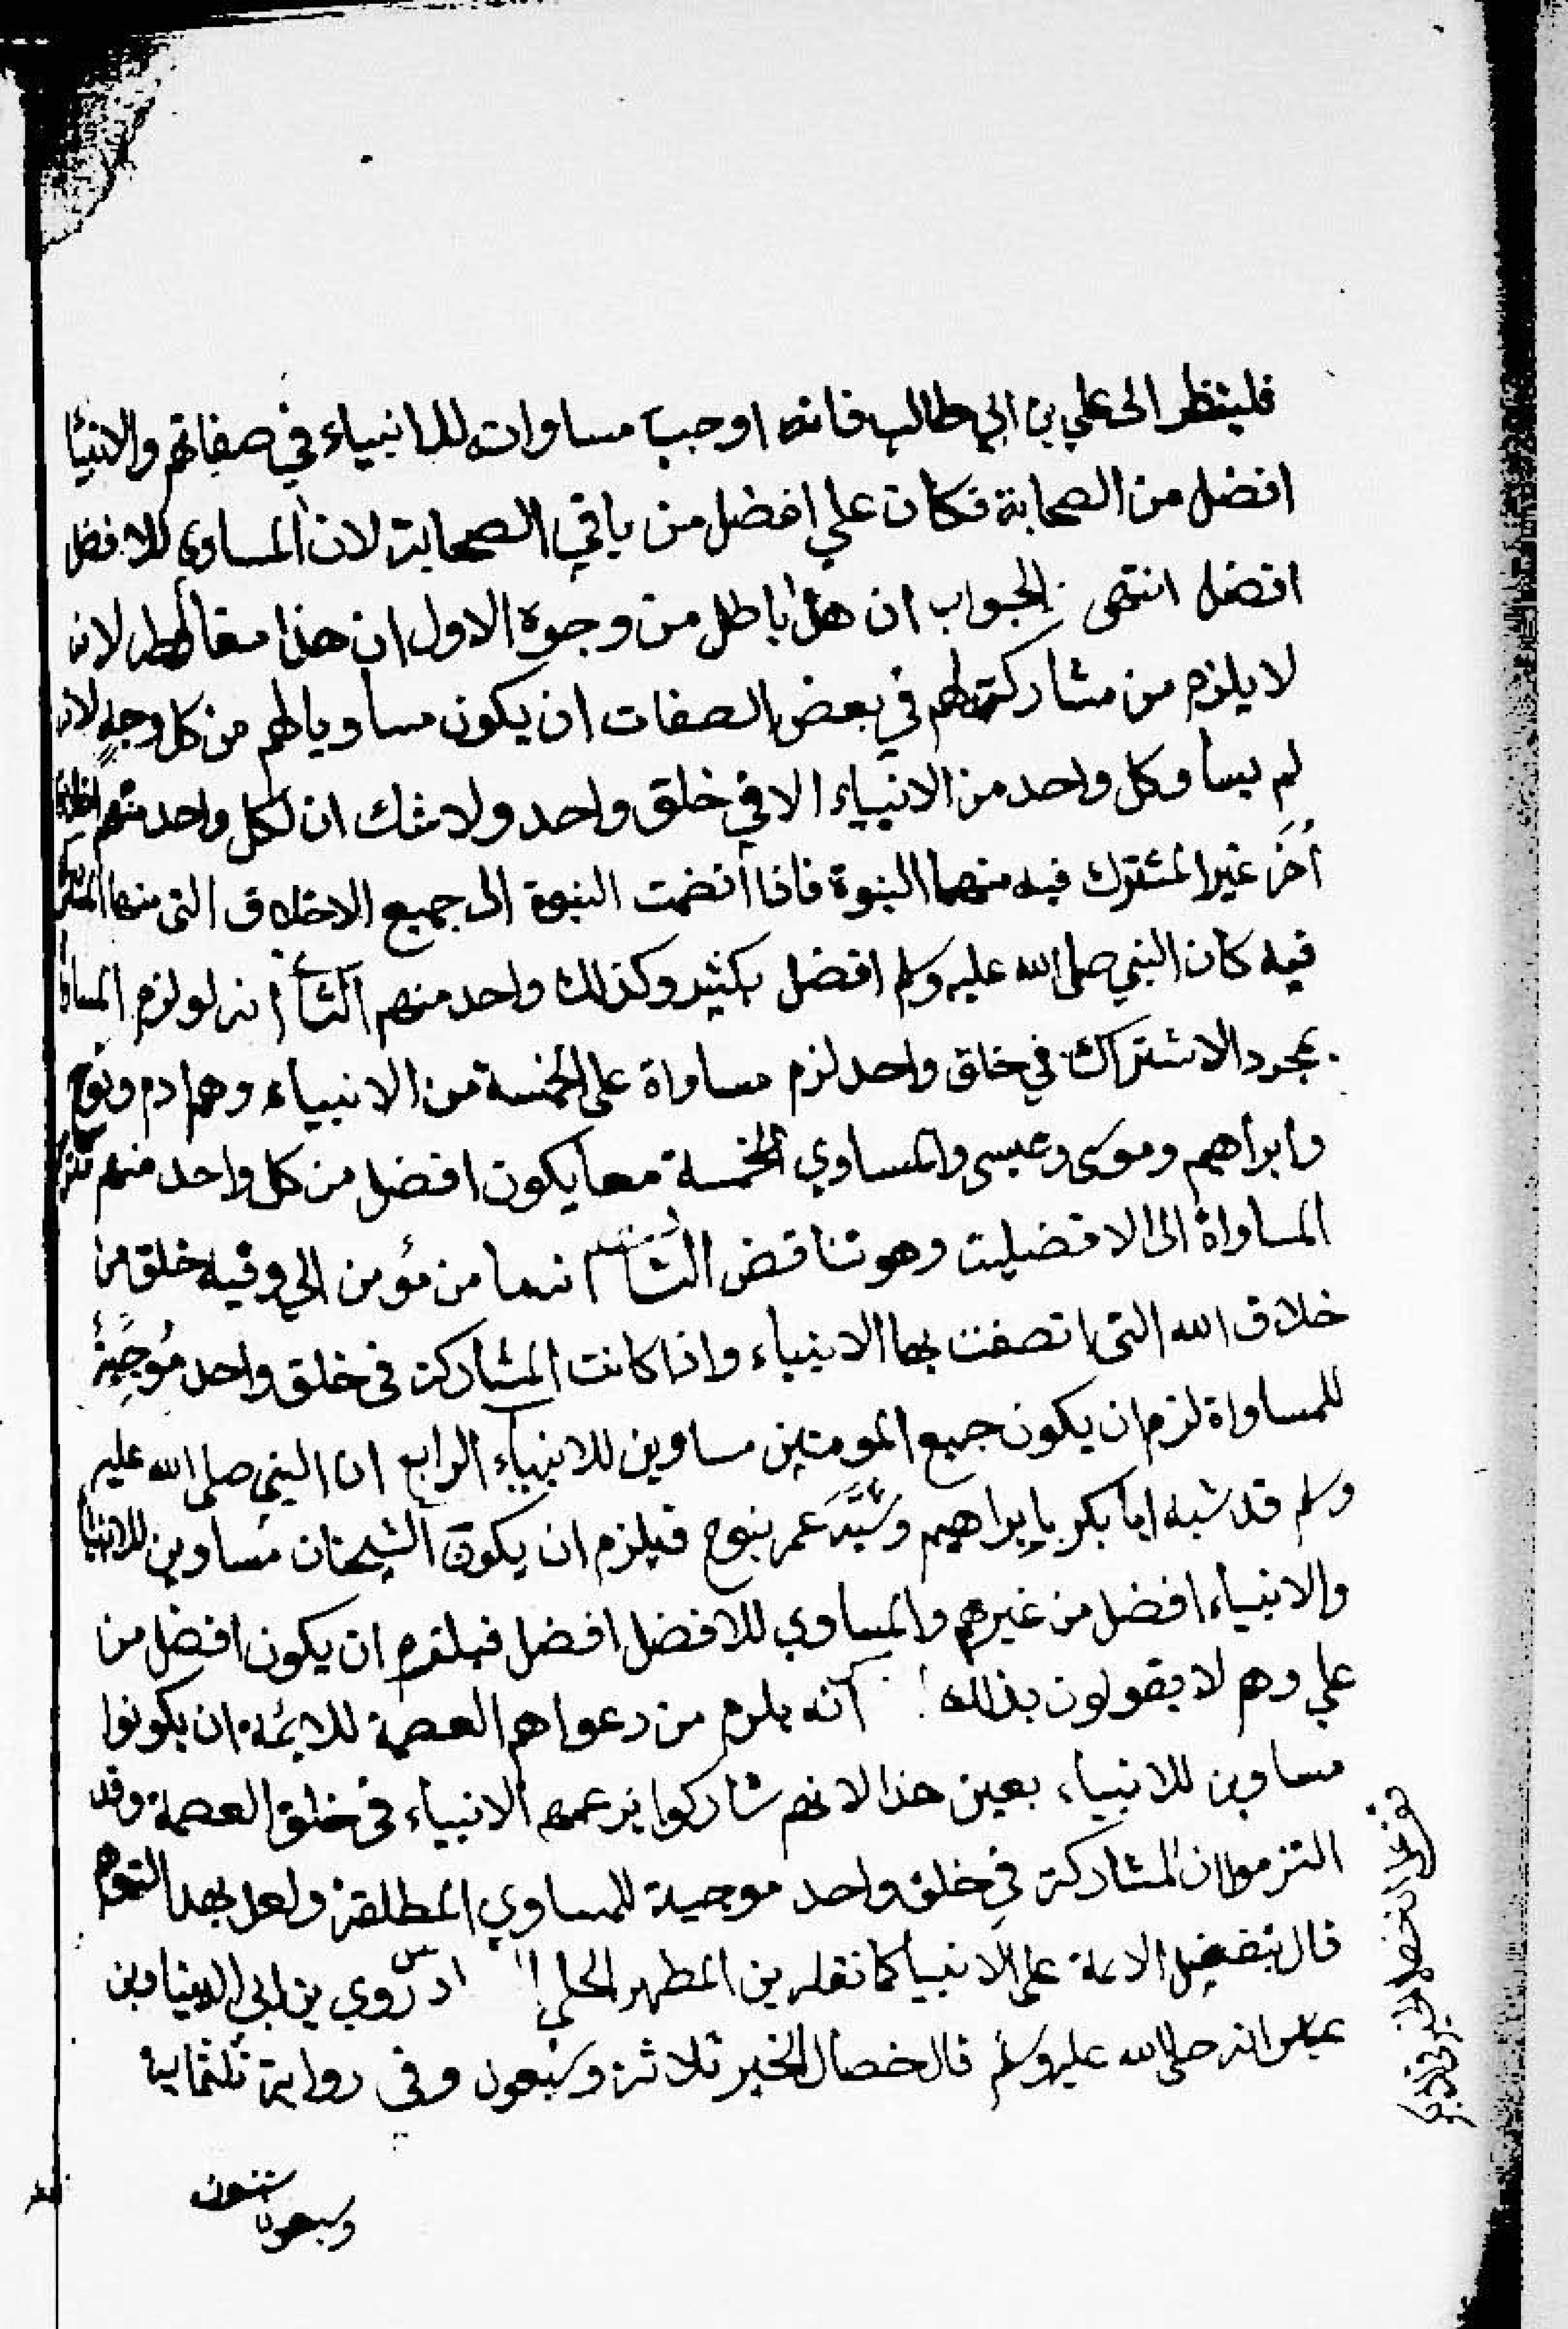 فلينظر الى علي بن ابي طالب فانه اوجب مساواته للانبياء في صفاتهم والانبيا
افضل من الصحابة فكان علي افضل من باقي الصحابة لان المساوي للافضل
افضل انتهى الجواب ان هذا باطل من وجوه الاول ان هذا مغالطه لانه
لا يلزم من مشاركته لهم في بعض الصفات ان يكون مساويا لهم من كل وجهٍ لانه
لم يساو كل واحد من الانبياء الا في خلق واحد ولا شك ان لكل واحد منهم اخلاقا
أُخَر غير المشترك فيه منهما النبوة فاذا انضمت النبوة الى جميع الاخلاق التى منها المشترك
فيه كان النبي صلى الله عليه وسلم افضل بكثير وكذلك واحد منهم الثاني انه لو لزم المساواة
بمجرد الاشتراك في خلق واحد لزم مساواة علي الخمسة من الانبياء وهم ادم ونوح
وابراهيم وموسى وعيسى والمساوي الخمسة معا يكون افضل من كل واحد منهم
المساواة الى الافضلية وهو تناقض الثالث انه ما من مؤمن الي وفيه خلق من
خلاق الله التى اتصفت بها الانبياء واذا كانت المشاركة فى خلق واحد مُوجِبَةً
للمساواة لزم ان يكون جميع المومنين مساوين للانبياء الرابع ان النبي صلى الله عليه
وسلم قد شبه ابا بكر بابراهيم وشَبَّهَ عمر بنوح فيلزم ان يكون الشيخان مساوين للانبيا
والانبياء افضل من غيرهم والمساوي للافضل افضل فيلزم ان يكون افضل من
علي وهم لا يقولون بذلك انه يلزم من دعواهم العصمة للايمة ان يكونوا
مساوين للانبياء بعين هذا لانهم شاركوا بزعمهم الانبياء فى خلق العصمة وقد
التزموا ان المشاركة في خلق واحد موجبة للمساوي المطلقة ولعل بهذا التوهم
قال بتفضيل الايمة على الانبيا كما نقله بن المطهر الحلي روي بن ابي الدنيا وبن
عباس انه صلى الله عليه وسلم قال خصال الخير ثلاثة وسبعون وفي رواية ثلثماية
وسبعون
ستون